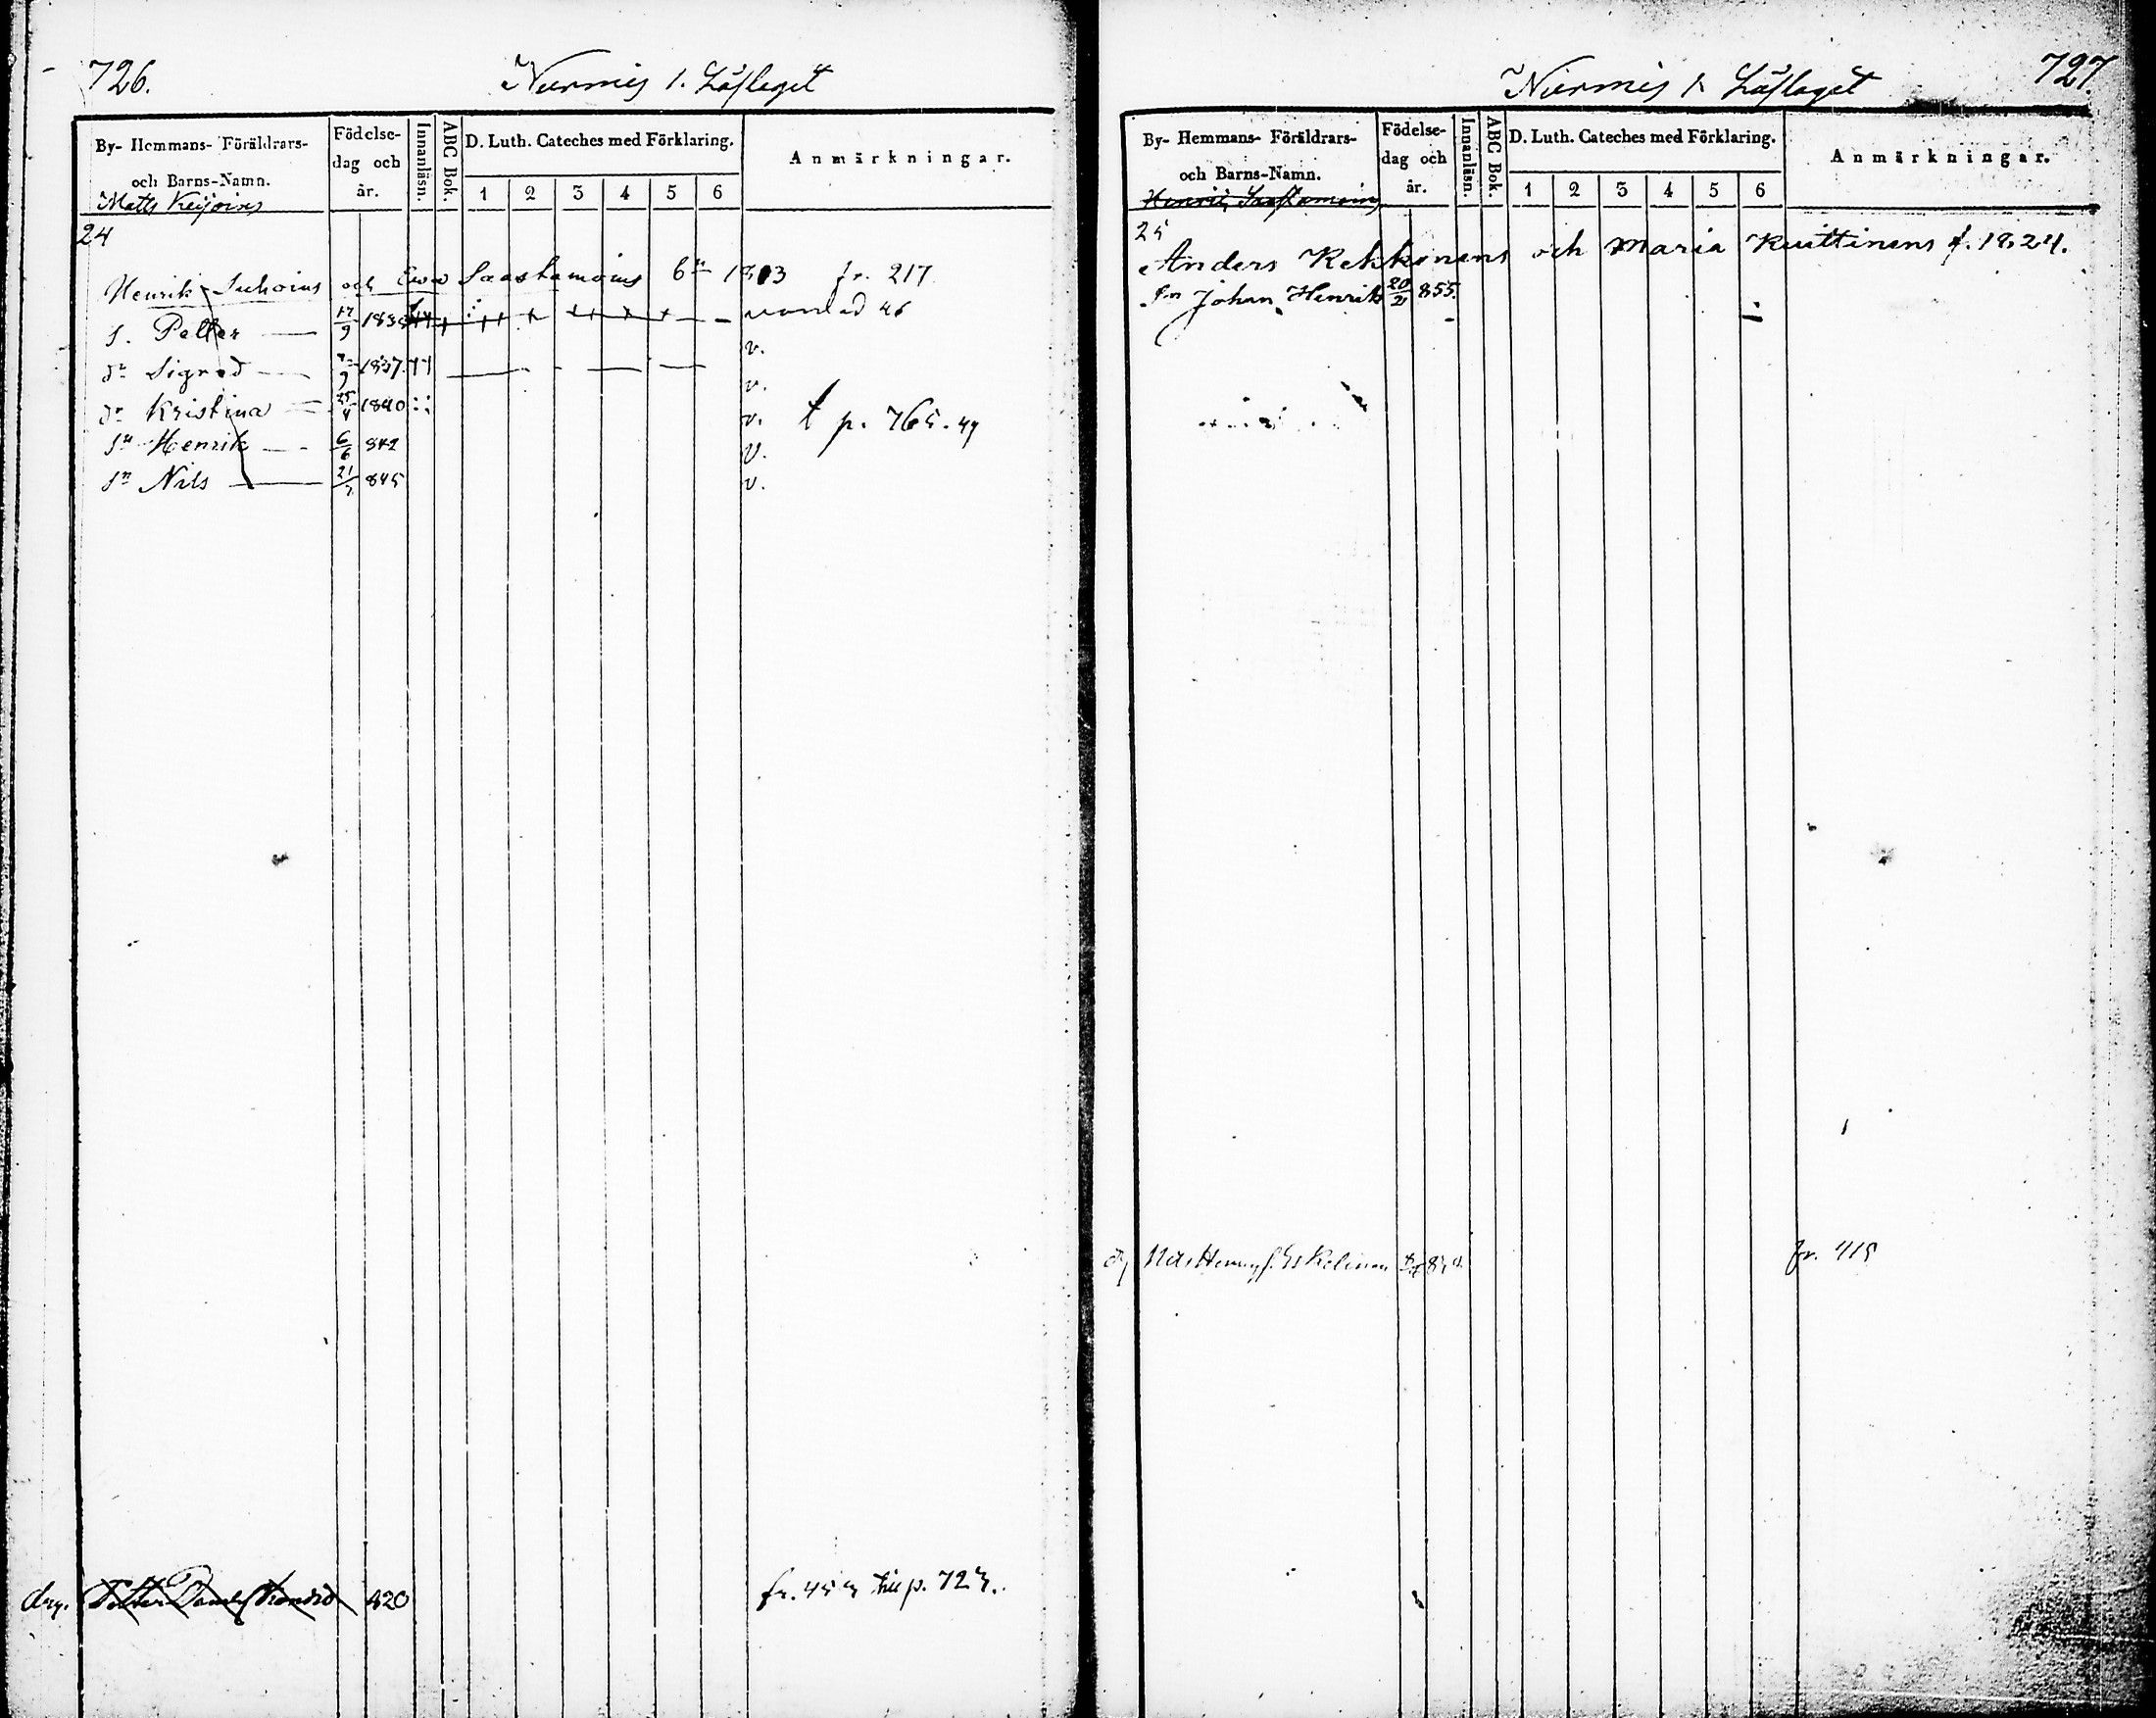 726.
Nurmis 1. Läslaget
By- Hemmans- Föräldrars- och Barns-Namn.
Födelse- dag och år.
Innanläsn.
ABC Bok.
D. Luth. Cateches med Förklaring.
1 2 3 4 5 6
Anmärkningar.
Matts Keijoins
24
Henrik Suhoins och Ewa Saastamoins 1803 fr. 217
s. Petter 17/9
dr Sigred 1837. v.
dr Kristina 25/4 1840 v. t p. 765. 49
sn Henrik 6/6 842 v.
sn Nils 845 v.
dry. 820 fr. till p. 723.
727.
Nurmis 1. Läslaget
By- Hemmans- Föräldrars- och Barns-Namn.
Födelse- dag och år.
Innanläsn.
ABC Bok.
D. Luth. Cateches med Förklaring.
1 2 3 4 5 6
Anmärkningar.
Henrik Saastamoins
25
Anders Kekkonens och Maria Kuittinens f. 1824.
sn Johan Henrik 20/2 855.
Nils Eskelinen fr. 415